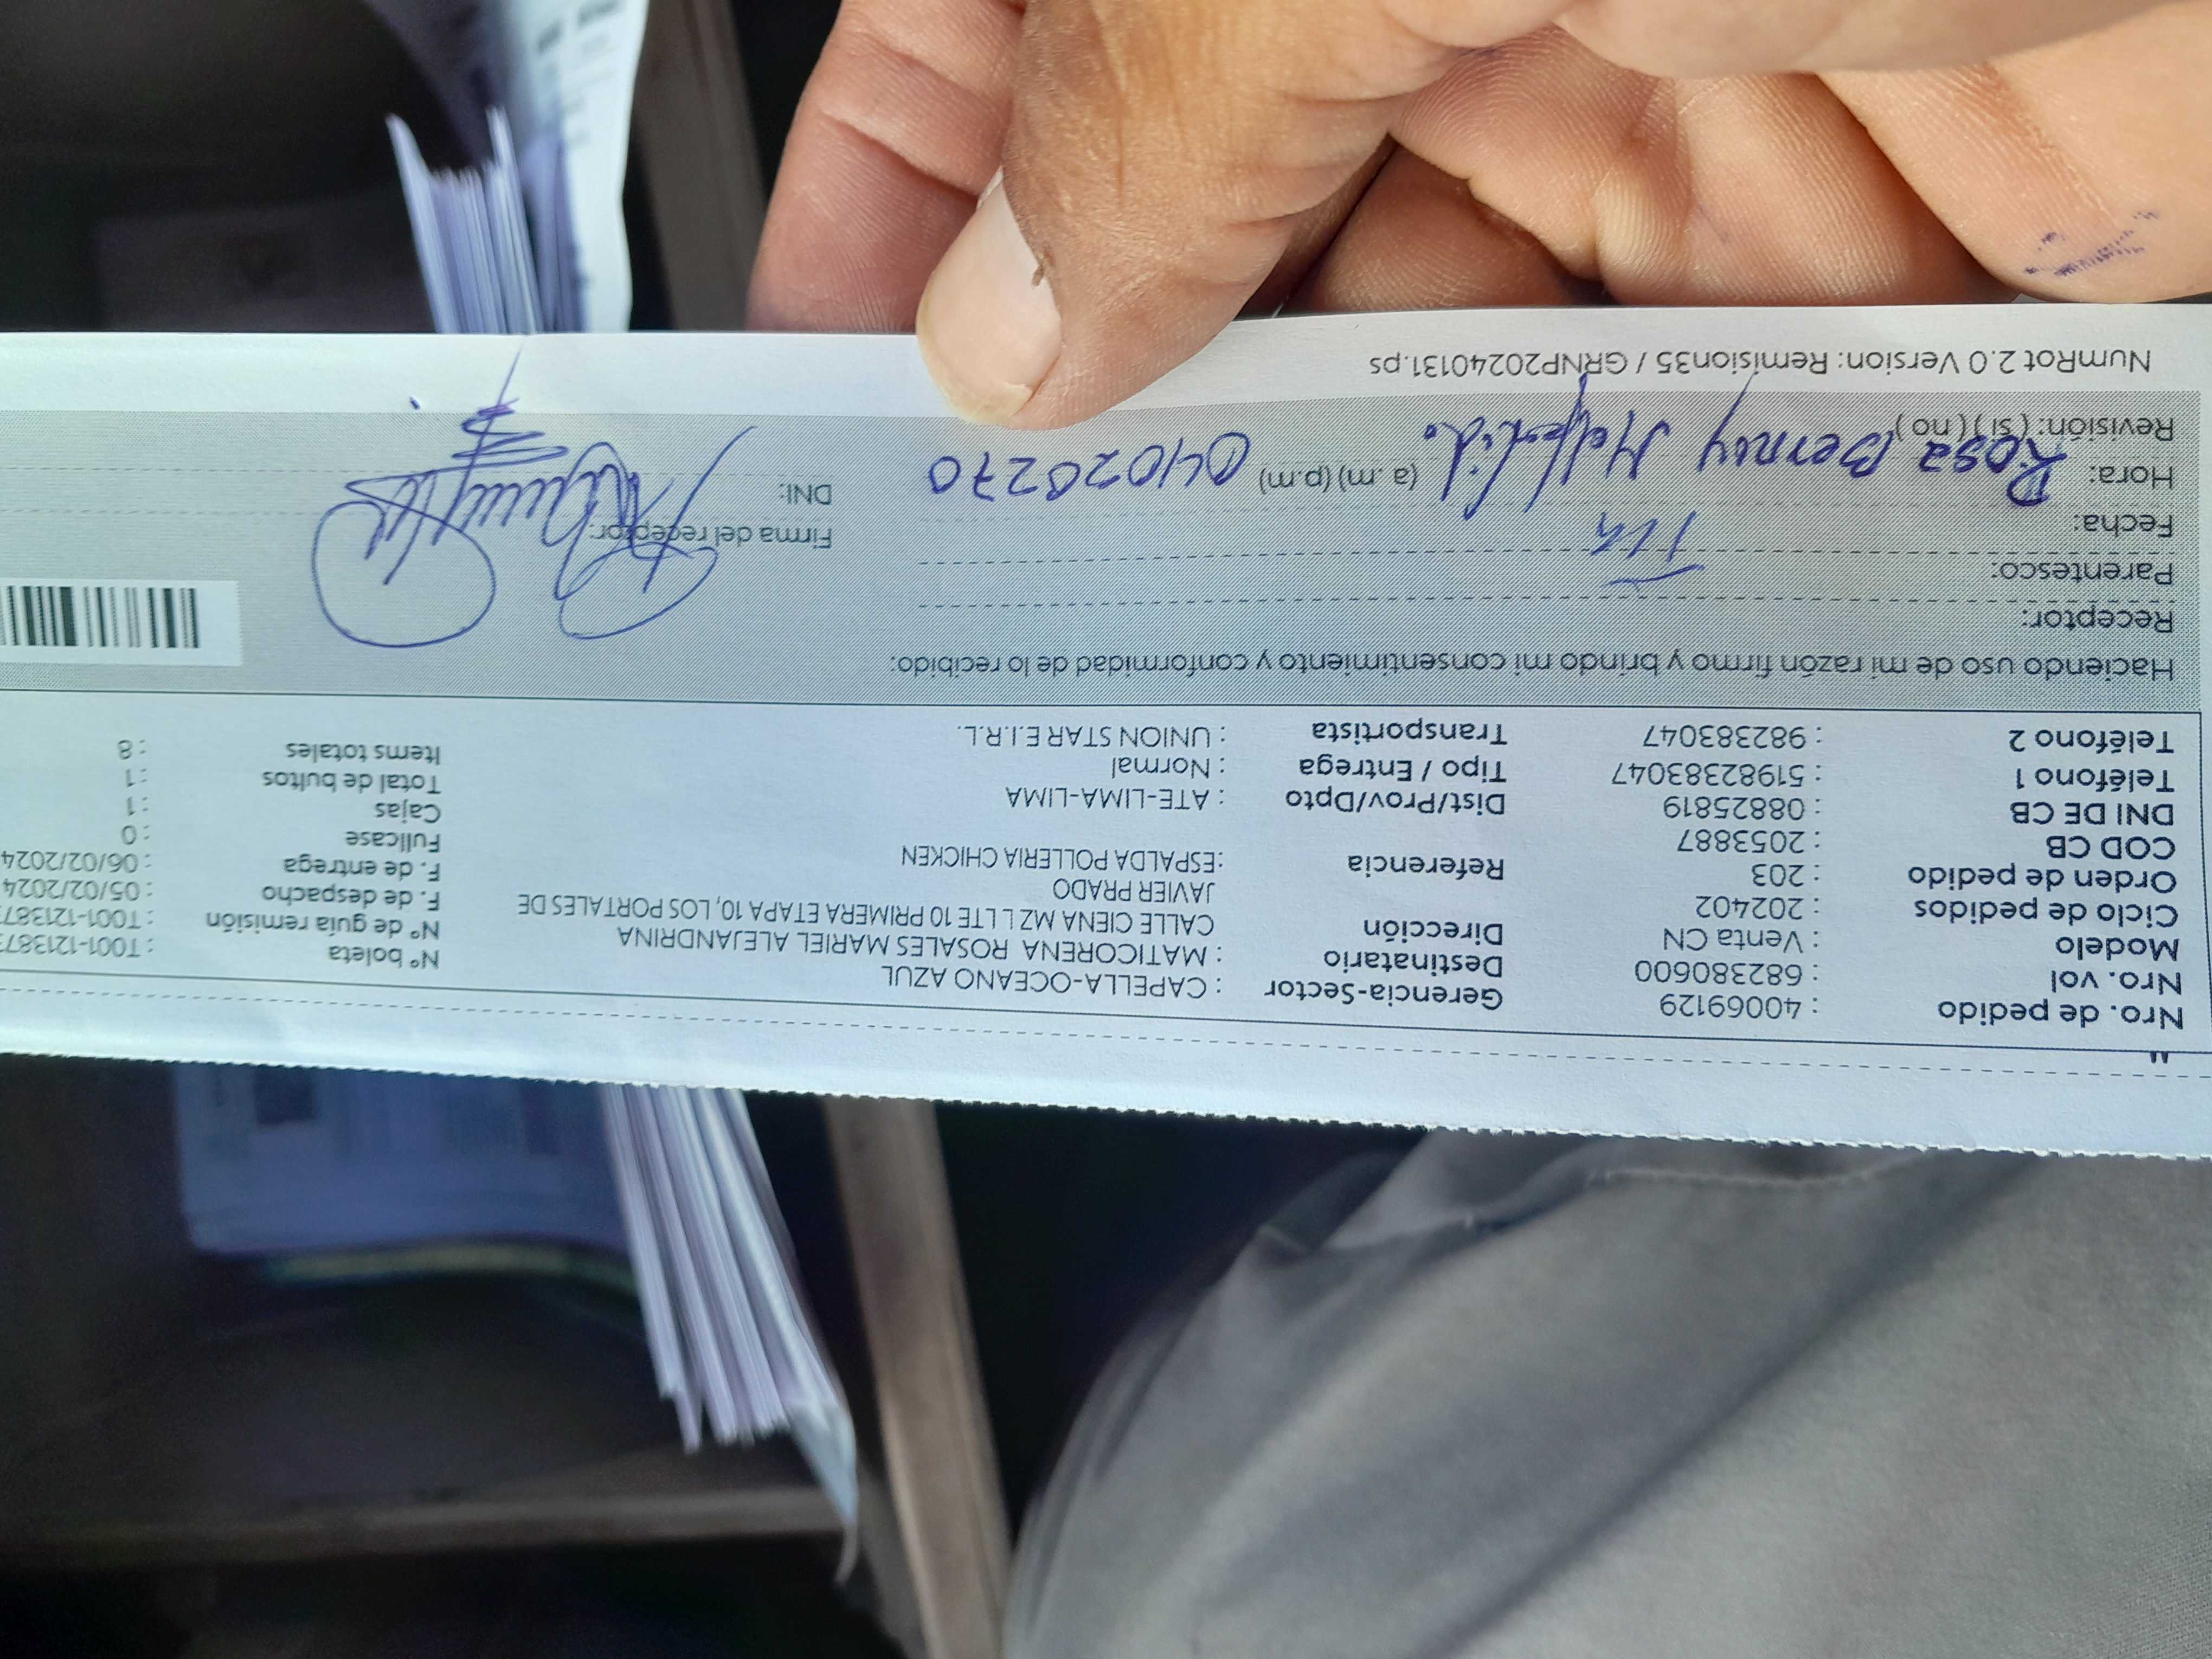 Nro. de pedido : 40069129 Gerencia-Sector : CAPELLA-OCEANO AZUL Nº boleta : T001-121387
Nro. vol : 682380600 Destinatario : MATICORENA ROSALES MARIEL ALEJANDRINA Nº de guía remisión : T001-121387
Modelo : Venta CN Dirección CALLE CIENA MZ L LTE 10 PRIMERA ETAPA 10, LOS PORTALES DE F. de despacho : 05/02/2024
Ciclo de pedidos : 202402 JAVIER PRADO F. de entrega : 06/02/2024
Orden de pedido : 203 Referencia :ESPALDA POLLERIA CHICKEN Fullcase : 0
COD CB : 2053887 Cajas : 1
DNI DE CB : 08825819 Dist/Prov/Dpto : ATE-LIMA-LIMA Total de bultos : 1
Teléfono 1 : 51982383047 Tipo / Entrega : Normal Items totales : 8
Teléfono 2 : 982383047 Transportista : UNION STAR E.I.R.L.
Haciendo uso de mi razón firmo y brindo mi consentimiento y conformidad de lo recibido:
Receptor:
Parentesco:
Fecha: Firma del receptor:
Hora: (a.m) (p.m) DNI:
Rosa 04020270
Revisión: (si) (no)
NumRot 2.0 Version: Remision35 / GRNP20240131.ps